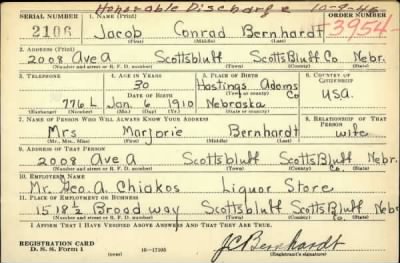 Honorable Discharge 10-9-45
SERIAL NUMBER 1. NAME (Print) ORDER NUMBER
2106 Jacob Conrad Bernhardt 3954
(First) (Middle) (Last)
2. ADDRESS (Print)
2008 Ave A Scottsbluff ScottsBluff Co. Nebr.
(Number and street or R. F. D. number) (Town) (County) (State)
3. TELEPHONE 4. AGE IN YEARS 5. PLACE OF BIRTH 6. COUNTRY OF CITIZENSHIP
30 Hastings Adams Co
DATE OF BIRTH (Town or county)
776 L Jan. 6 1910 Nebraska USA.
(Exchange) (Number) (Mo.) (Day) (Yr.) (State or country)
7. NAME OF PERSON WHO WILL ALWAYS KNOW YOUR ADDRESS 8. RELATIONSHIP OF THAT PERSON
Mrs Marjorie Bernhardt wife
(Mr., Mrs., Miss) (First) (Middle) (Last)
9. ADDRESS OF THAT PERSON
2008 Ave A Scottsbluff ScottsBluff Co. Nebr.
(Number and street or R. F. D. number) (Town) (County) (State)
10. EMPLOYER'S NAME
Mr. Geo. A. Chiakos Liquor Store
11. PLACE OF EMPLOYMENT OR BUSINESS
1518½ Broadway Scottsbluff ScottsBluff Co. Nebr
(Number and street or R. F. D. number) (Town) (County) (State)
I AFFIRM THAT I HAVE VERIFIED ABOVE ANSWERS AND THAT THEY ARE TRUE.
REGISTRATION CARD
D. S. S. Form 1 (over) 16—17105 J C Bernhardt